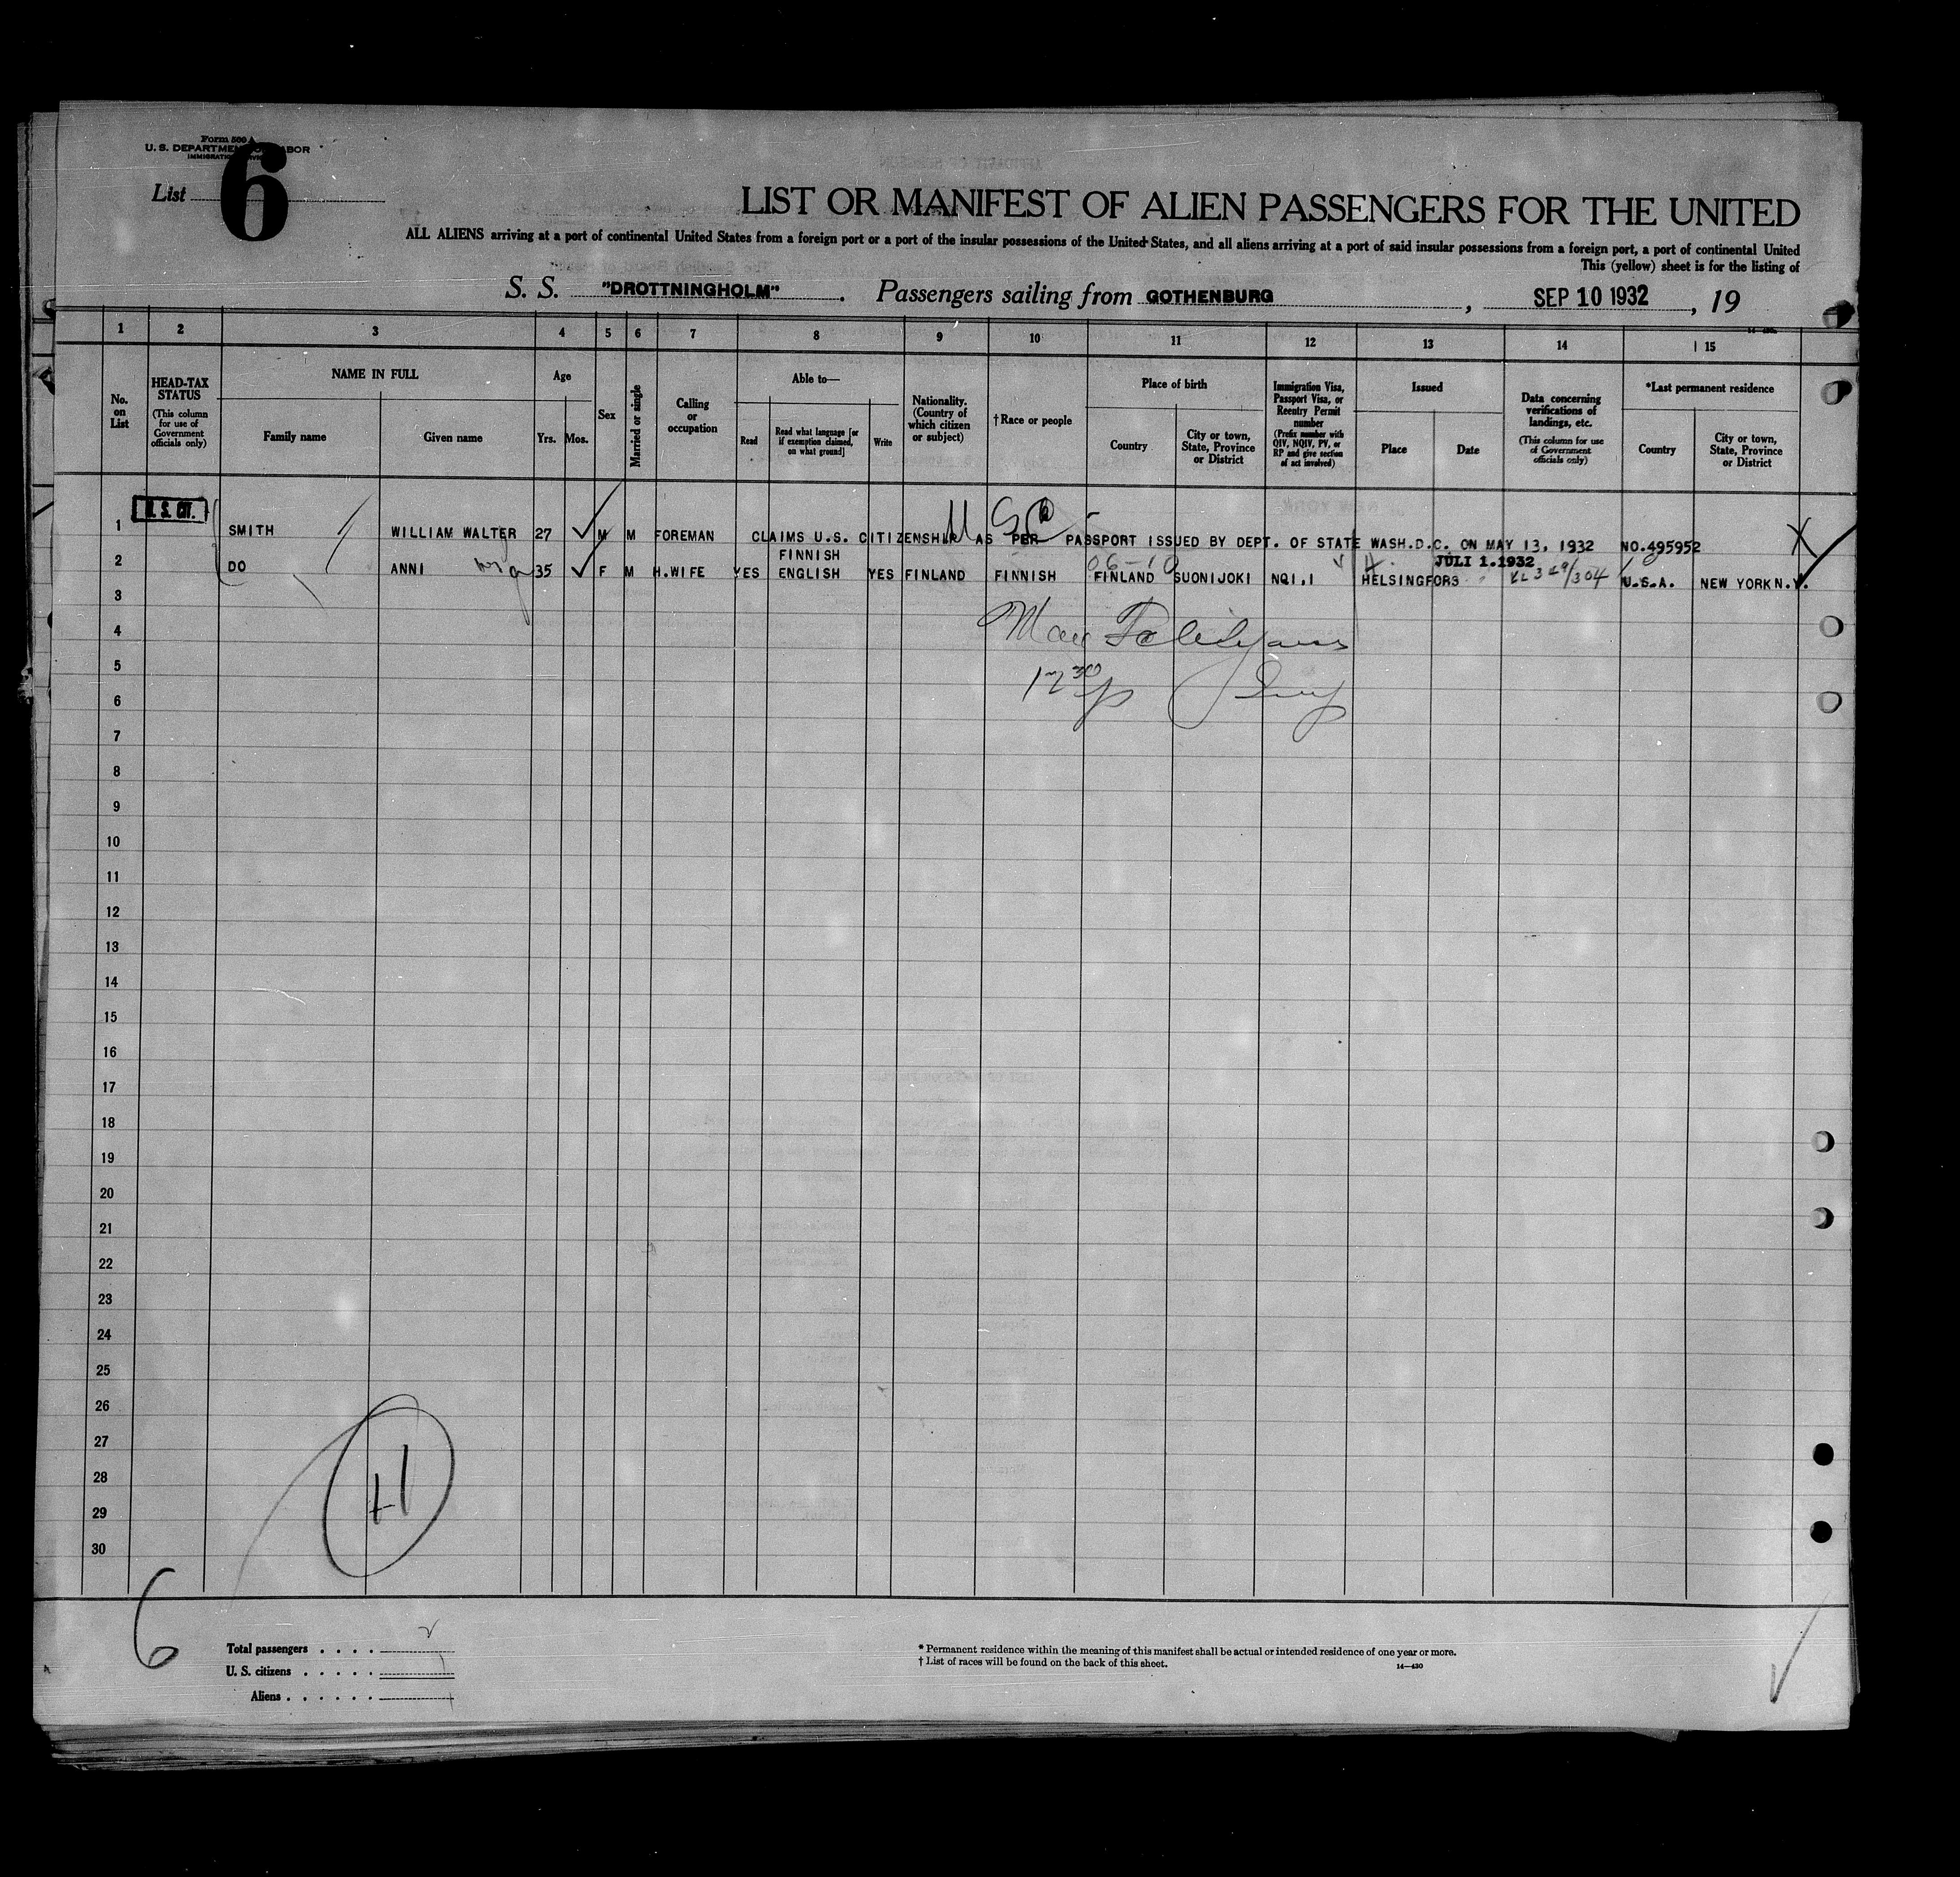 Form 500 A
U. S. DEPARTMENT OF LABOR
List 6
LIST OR MANIFEST OF ALIEN PASSENGERS FOR THE UNITED
ALL ALIENS arriving at a port of continental United States from a foreign port or a port of the insular possessions of the United States, and all aliens arriving at a port of said insular possessions from a foreign port, a port of continental United
This (yellow) sheet is for the listing of
S. S. "DROTTNINGHOLM". Passengers sailing from GOTHENBURG, SEP 10 1932, 19
1 2 3 4 5 6 7 8 9 10 11 12 13 14 15
No. on List
HEAD-TAX STATUS (This column for use of Government officials only)
NAME IN FULL
Family name
Given name
Age
Yrs. Mos.
Sex
Married or single
Calling or occupation
Able to—
Read
Read what language [or if exemption claimed, on what ground]
Write
Nationality. (Country of which citizen or subject)
†Race or people
Place of birth
Country
City or town, State, Province or District
Immigration Visa, Passport Visa, or Reentry Permit number (Prefix number with QIV, NQIV, PV, or RP and give section of act involved)
Issued
Place
Date
Data concerning verifications of landings, etc. (This column for use of Government officials only)
*Last permanent residence
Country
City or town, State, Province or District
U. S. CIT.
1 SMITH WILLIAM WALTER 27 M M FOREMAN CLAIMS U.S. CITIZENSHIP AS PER PASSPORT ISSUED BY DEPT. OF STATE WASH.D.C. ON MAY 13, 1932 NO.495952
USC
FINNISH
JULI 1.1932
2 DO ANNI 35 F M H.WIFE YES ENGLISH YES FINLAND FINNISH FINLAND SUONIJOKI NQI,I HELSINGFORS U.S.A. NEW YORK N.Y.
3
4
5
12 30 p
6
7
8
9
10
11
12
13
14
15
16
17
18
19
20
21
22
23
24
25
26
27
28
29
30
6
Total passengers . . . . 2
U. S. citizens . . . . . 1
Aliens . . . . . . 1
* Permanent residence within the meaning of this manifest shall be actual or intended residence of one year or more.
† List of races will be found on the back of this sheet.
14—430